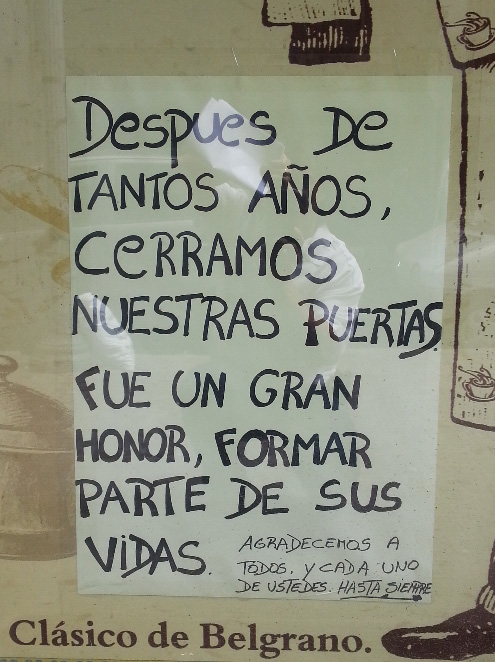 Despues De
TANTOS AÑOS,
CERRAMOS
NUESTRAS PUERTAS
FUE UN GRAN
HONOR, FORMAR
PARTE DE SUS
ViDAS.
AGRADECEMOS A
TODOS. y CADA UNO
DE USTEDES. HASTA SIEMPRE
Clásico de Belgrano.